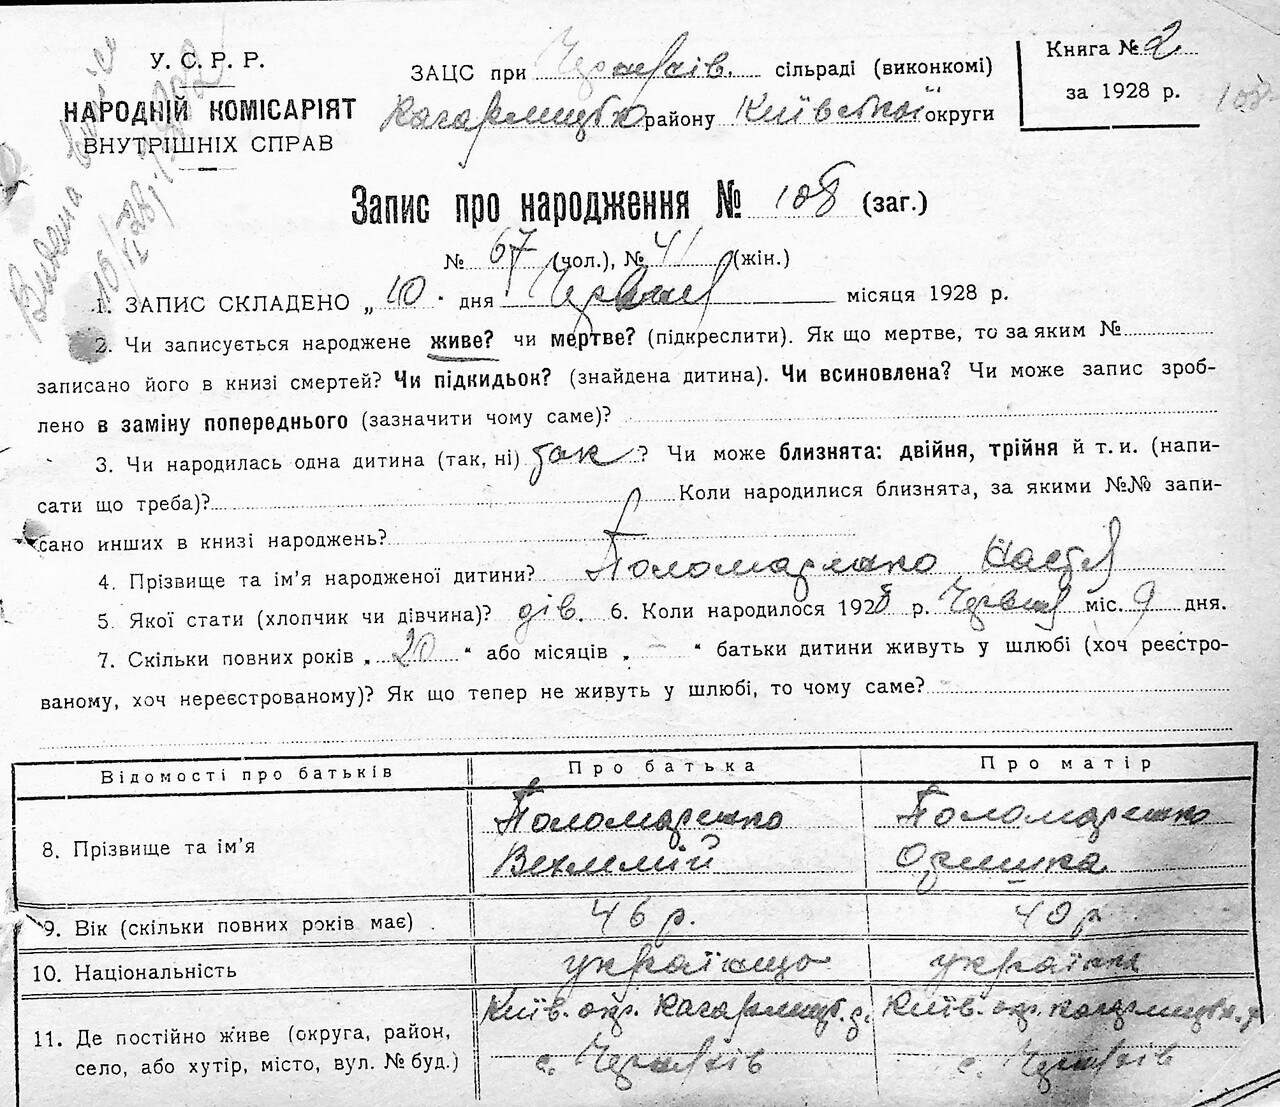 У. С. Р. Р.
НАРОДНІЙ КОМІСАРІЯТ
ВНУТРІШНІХ СПРАВ
ЗАЦС при сільраді (виконкомі)
Кагарлицьк району Київської округи
Книга № 2
за 1928 р.
108
Запис про народження № 108 (заг.)
№ 67 (чол.), № 41 (жін.)
1. ЗАПИС СКЛАДЕНО „ 10 " дня Червня місяця 1928 р.
2. Чи записується народжене живе? чи мертве? (підкреслити). Як що мертве, то за яким №
записано його в книзі смертей? Чи підкидьок? (знайдена дитина). Чи всиновлена? Чи може запис зроб-
лено в заміну попереднього (зазначити чому саме)?
3. Чи народилась одна дитина (так, ні) так ? Чи може близнята: двійня, трійня й т. и. (напи-
сати що треба)? Коли народилися близнята, за якими №№ запи-
сано инших в книзі народжень?
4. Прізвище та ім'я народженої дитини? Поломаренко Настя
5. Якої стати (хлопчик чи дівчина)? дів. 6. Коли народилося 1928 р. Червня міс. 9 дня.
7. Скільки повних років „ 20 " або місяців „ – " батьки дитини живуть у шлюбі (хоч реєстро-
ваному, хоч нереєстрованому)? Як що тепер не живуть у шлюбі, то чому саме?
Відомості про батьків Про батька Про матір
8. Прізвище та ім'я Поломаренко Поломаренко
Оришка
9. Вік (скільки повних років має) 46 р. 40 р
10. Національність українць українка
11. Де постійно живе (округа, район, Київ. окр. Кагарлицьк. р. Київ. окр. Кагарлицьк. р
село, або хутір, місто, вул. № буд.) с. с.